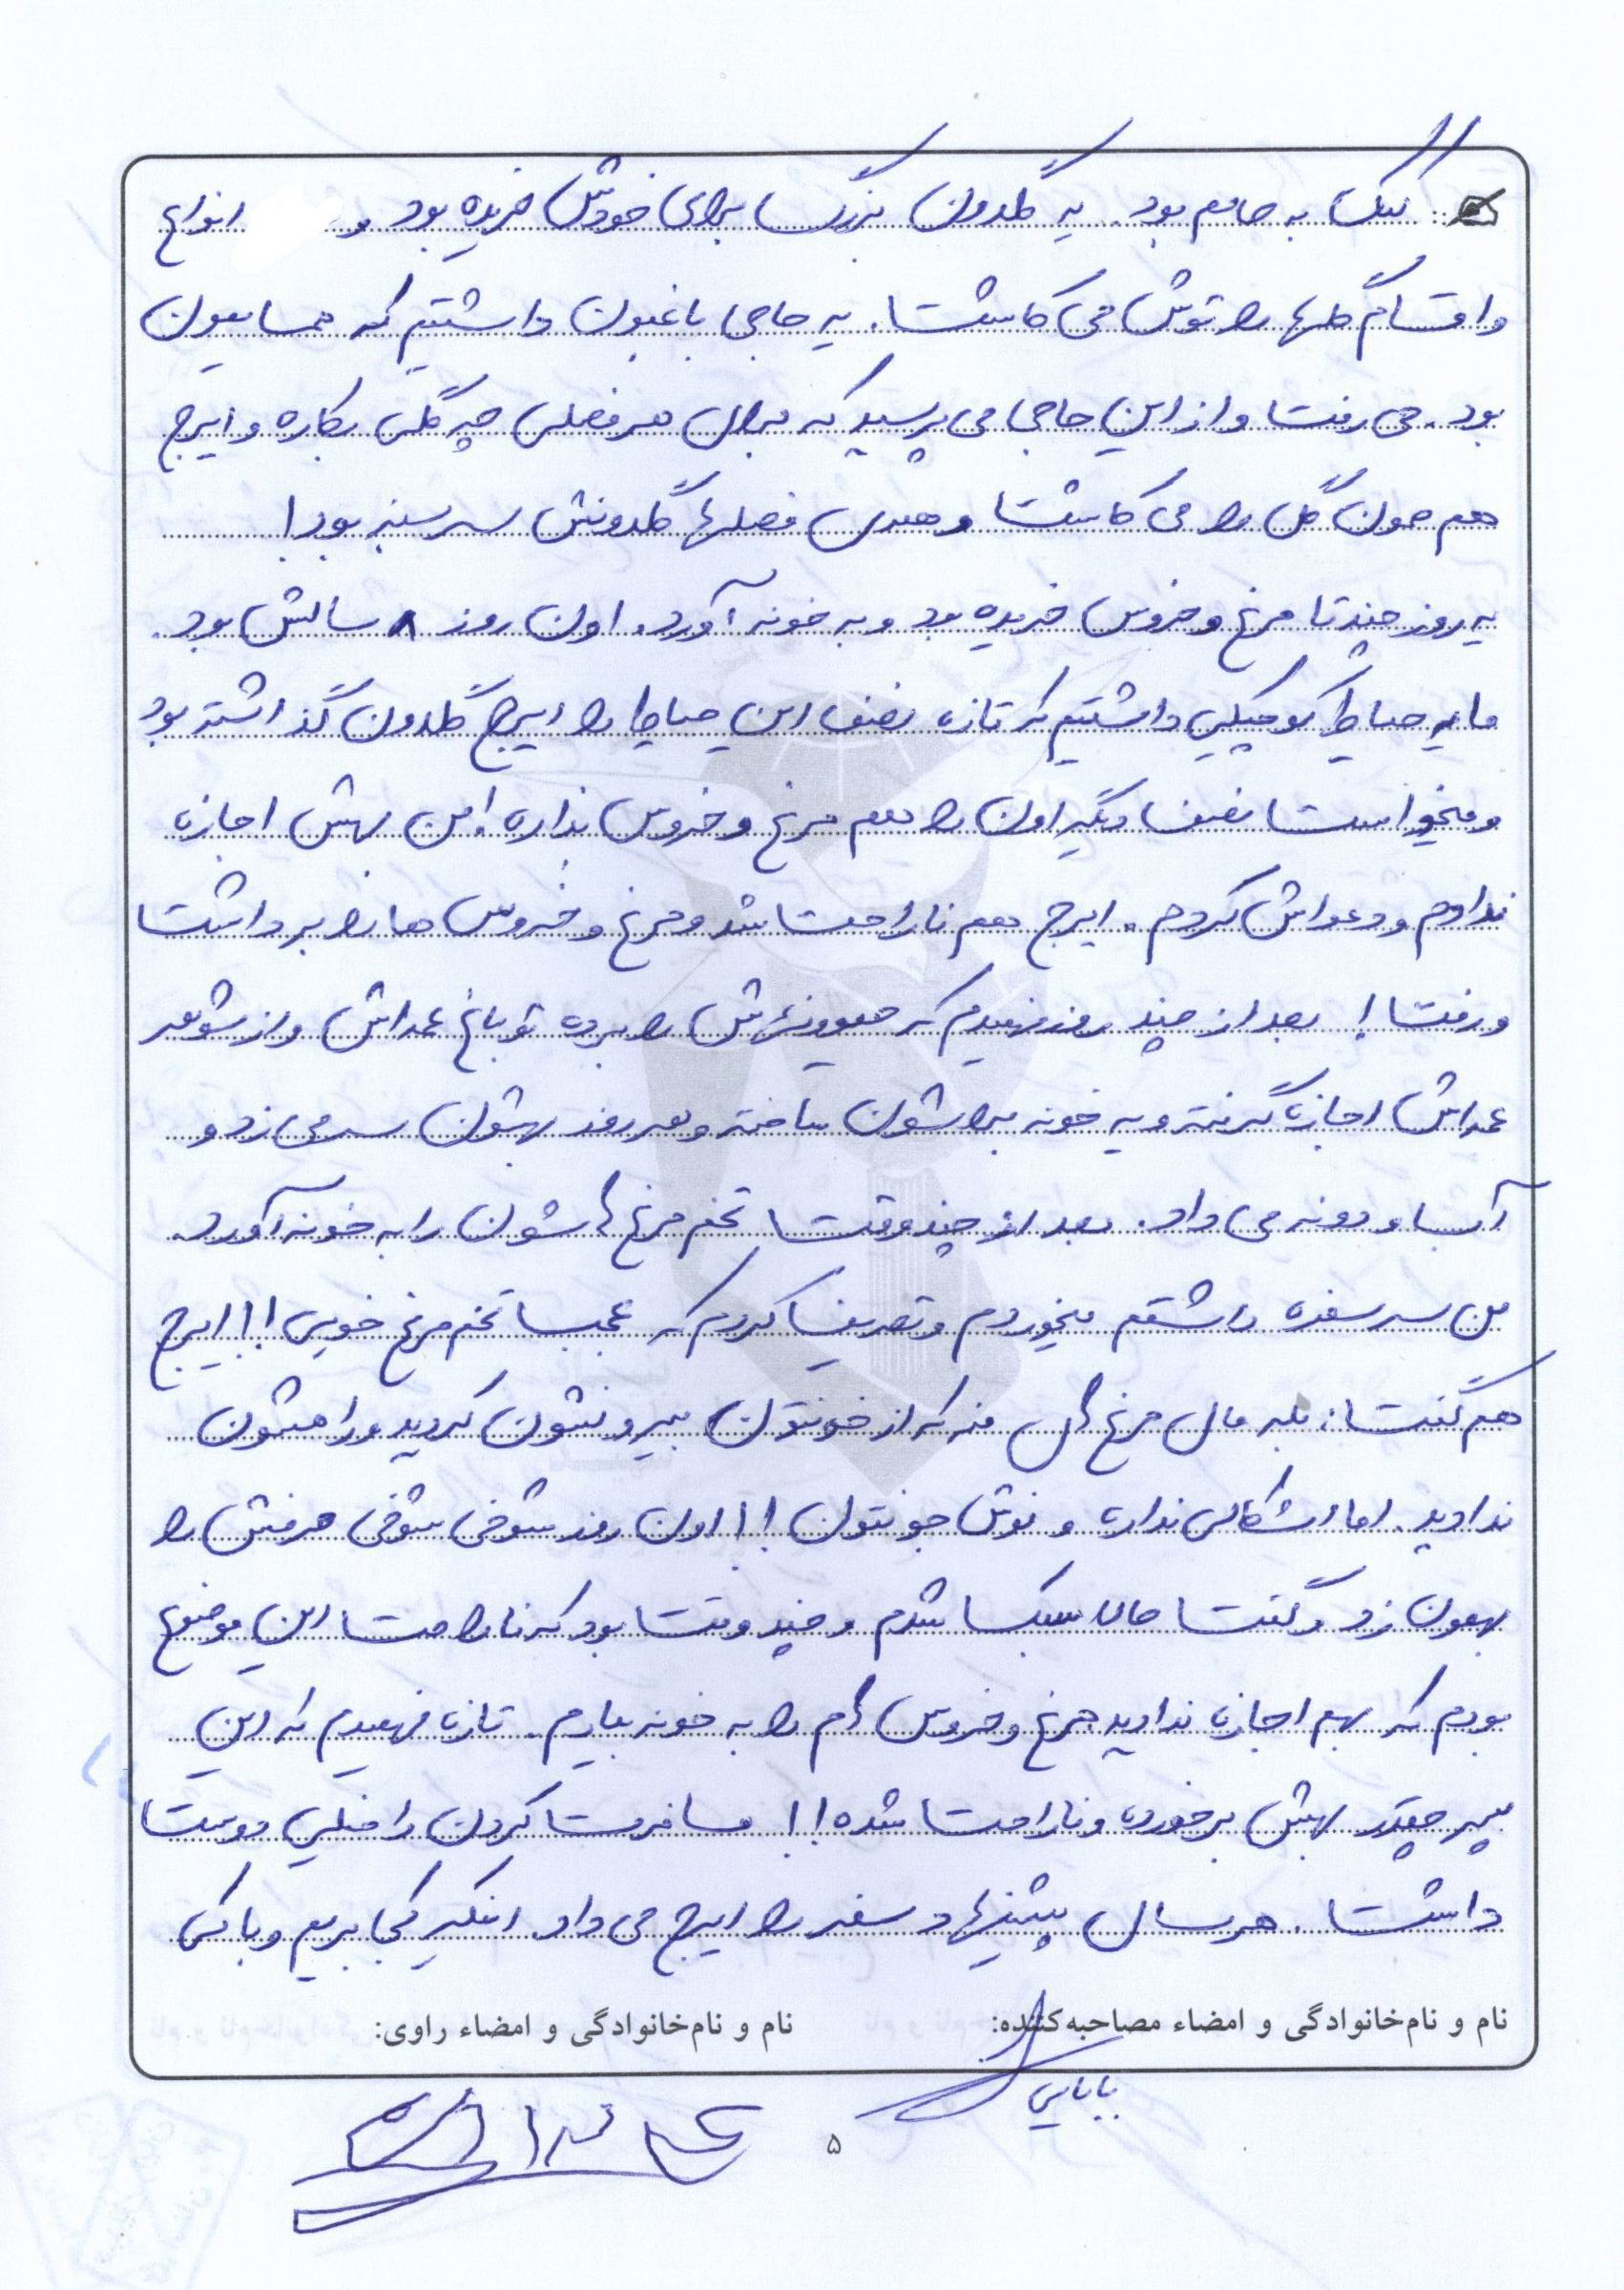 کمک به جامعه بود. یه گلدون بزرگ برای خودش خریده بود و انواع
واقسام گلها را توش می کاشت. یه حاجی باغبون داشتیم که همسایمون
بود. می رفت و از این حاجی می پرسید که برای هر فصلی چه گلی بکاره و ایرج
هم همون گل را می کاشت و همه ی فصلها گلدونش سرسبز بود!
یه روز چند تا مرغ و خروس خریده بود و به خونه آورد. اون روز ۸ سالش بود.
ما یه حیاط کوچیکی داشتیم که تازه نصف این حیاط را ایرج گلدون گذاشته بود
و میخواست نصف دیگه اون را هم مرغ و خروس بذاره! من بهش اجازه
ندادم و دعواش کردم. ایرج هم ناراحت شد و مرغ و خروس ها را برداشت
و رفت! بعد از چند روز فهمیدم که حیوونهاش را برده تو باغ عمه‌اش و از شوهر
عمه‌اش اجازه گرفته و یه خونه براشون ساخته و هر روز بهشون سر می زد و
آب و دونه می داد. بعد از چند وقت تخم مرغ هاشون را به خونه آورد.
من سر سفره داشتم میخوردم و تعریف کردم که عجب تخم مرغ خوبی!! ایرج
هم گفت: بله مال مرغ های منه که از خونتون بیرونشون کردید و راهشون
ندادید. اما اشکالی نداره و نوش جونتون!! اون روز شوخی شوخی حرفش را
بهمون زد و گفت حالا سبک شدم و چند وقت بود که ناراحت این موضوع
بودم که بهم اجازه ندادید مرغ و خروس هام را به خونه بیارم. تازه فهمیدم که این
پسر چقدر بهش برخورده و ناراحت شده!! مسافرت کردن را خیلی دوست
داشت. هر سال پیشنهاد سفر را ایرج می داد. اینکه کجا بریم و با کی
نام و نام‌خانوادگی و امضاء مصاحبه‌کننده:
نام و نام‌خانوادگی و امضاء راوی:
بابایی
۵